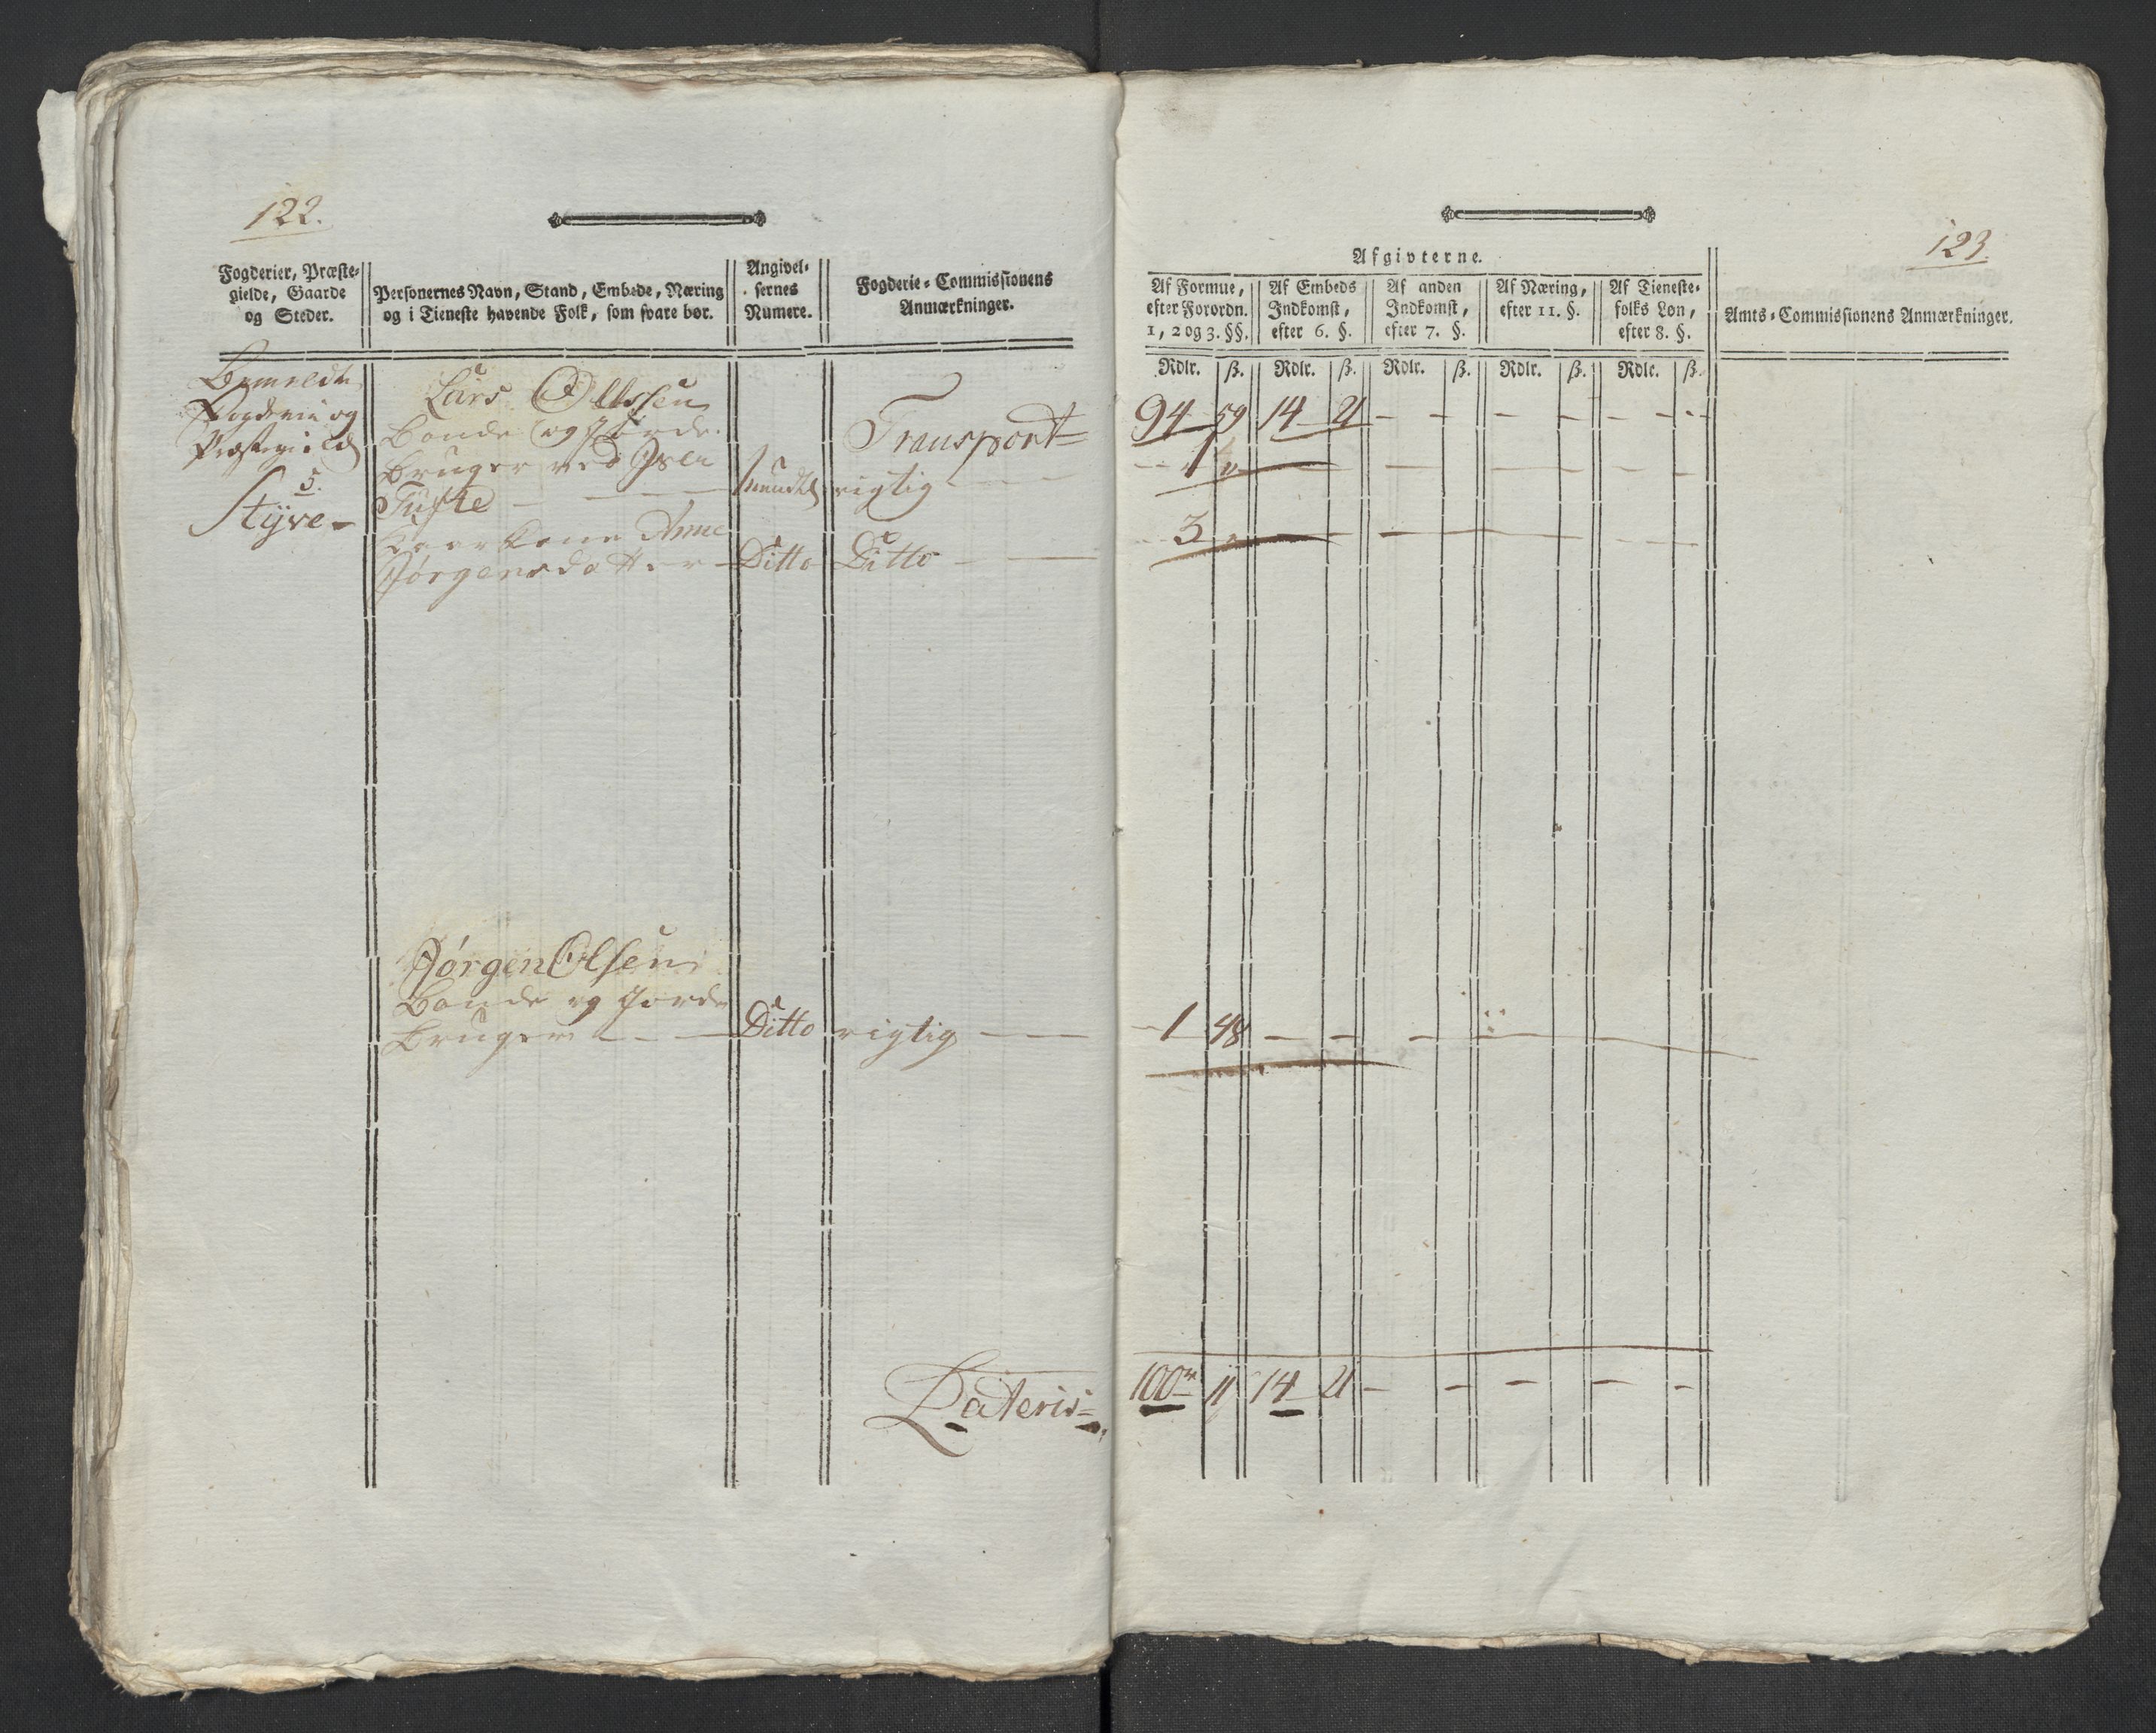 122.
Fogderier, Præste-
gielde, Gaarde
og Steder.
Personernes Navn, Stand, Embede, Næring
og i Tieneste havende Folk, som svare bør.
Angivel-
sernes
Numere.
Fogderie-Commissionens
Anmærkninger.
Bemeldte
Fogderie og
Præstegield
5.
Styve-
Lars Olsen
Bonde og Jorde
bruger ved
Tufte
Mundtl rigtig
Transport
Anne
Jørgensdatter Ditto Ditto
Jørgen Olsen
Bonde og Jorde
bruger Ditto rigtig
Lateris
123.
Afgivterne.
Af Formue,
efter Forordn.
1, 2 og 3. §§.
Af Embeds
Indkomst,
efter 6. §.
Af anden
Indkomst,
efter 7. §.
Af Næring,
efter 11. §.
Af Tieneste-
folks Løn,
efter 8. §.
Amts-Commissionens Anmærkninger.
Rdlr. ß. Rdlr. ß. Rdlr. ß. Rdlr. ß. Rdlr. ß.
94 59 14 21 - - - - - -
1 "
3 "
1 48 - - -
100 11 14 21 - - - - -